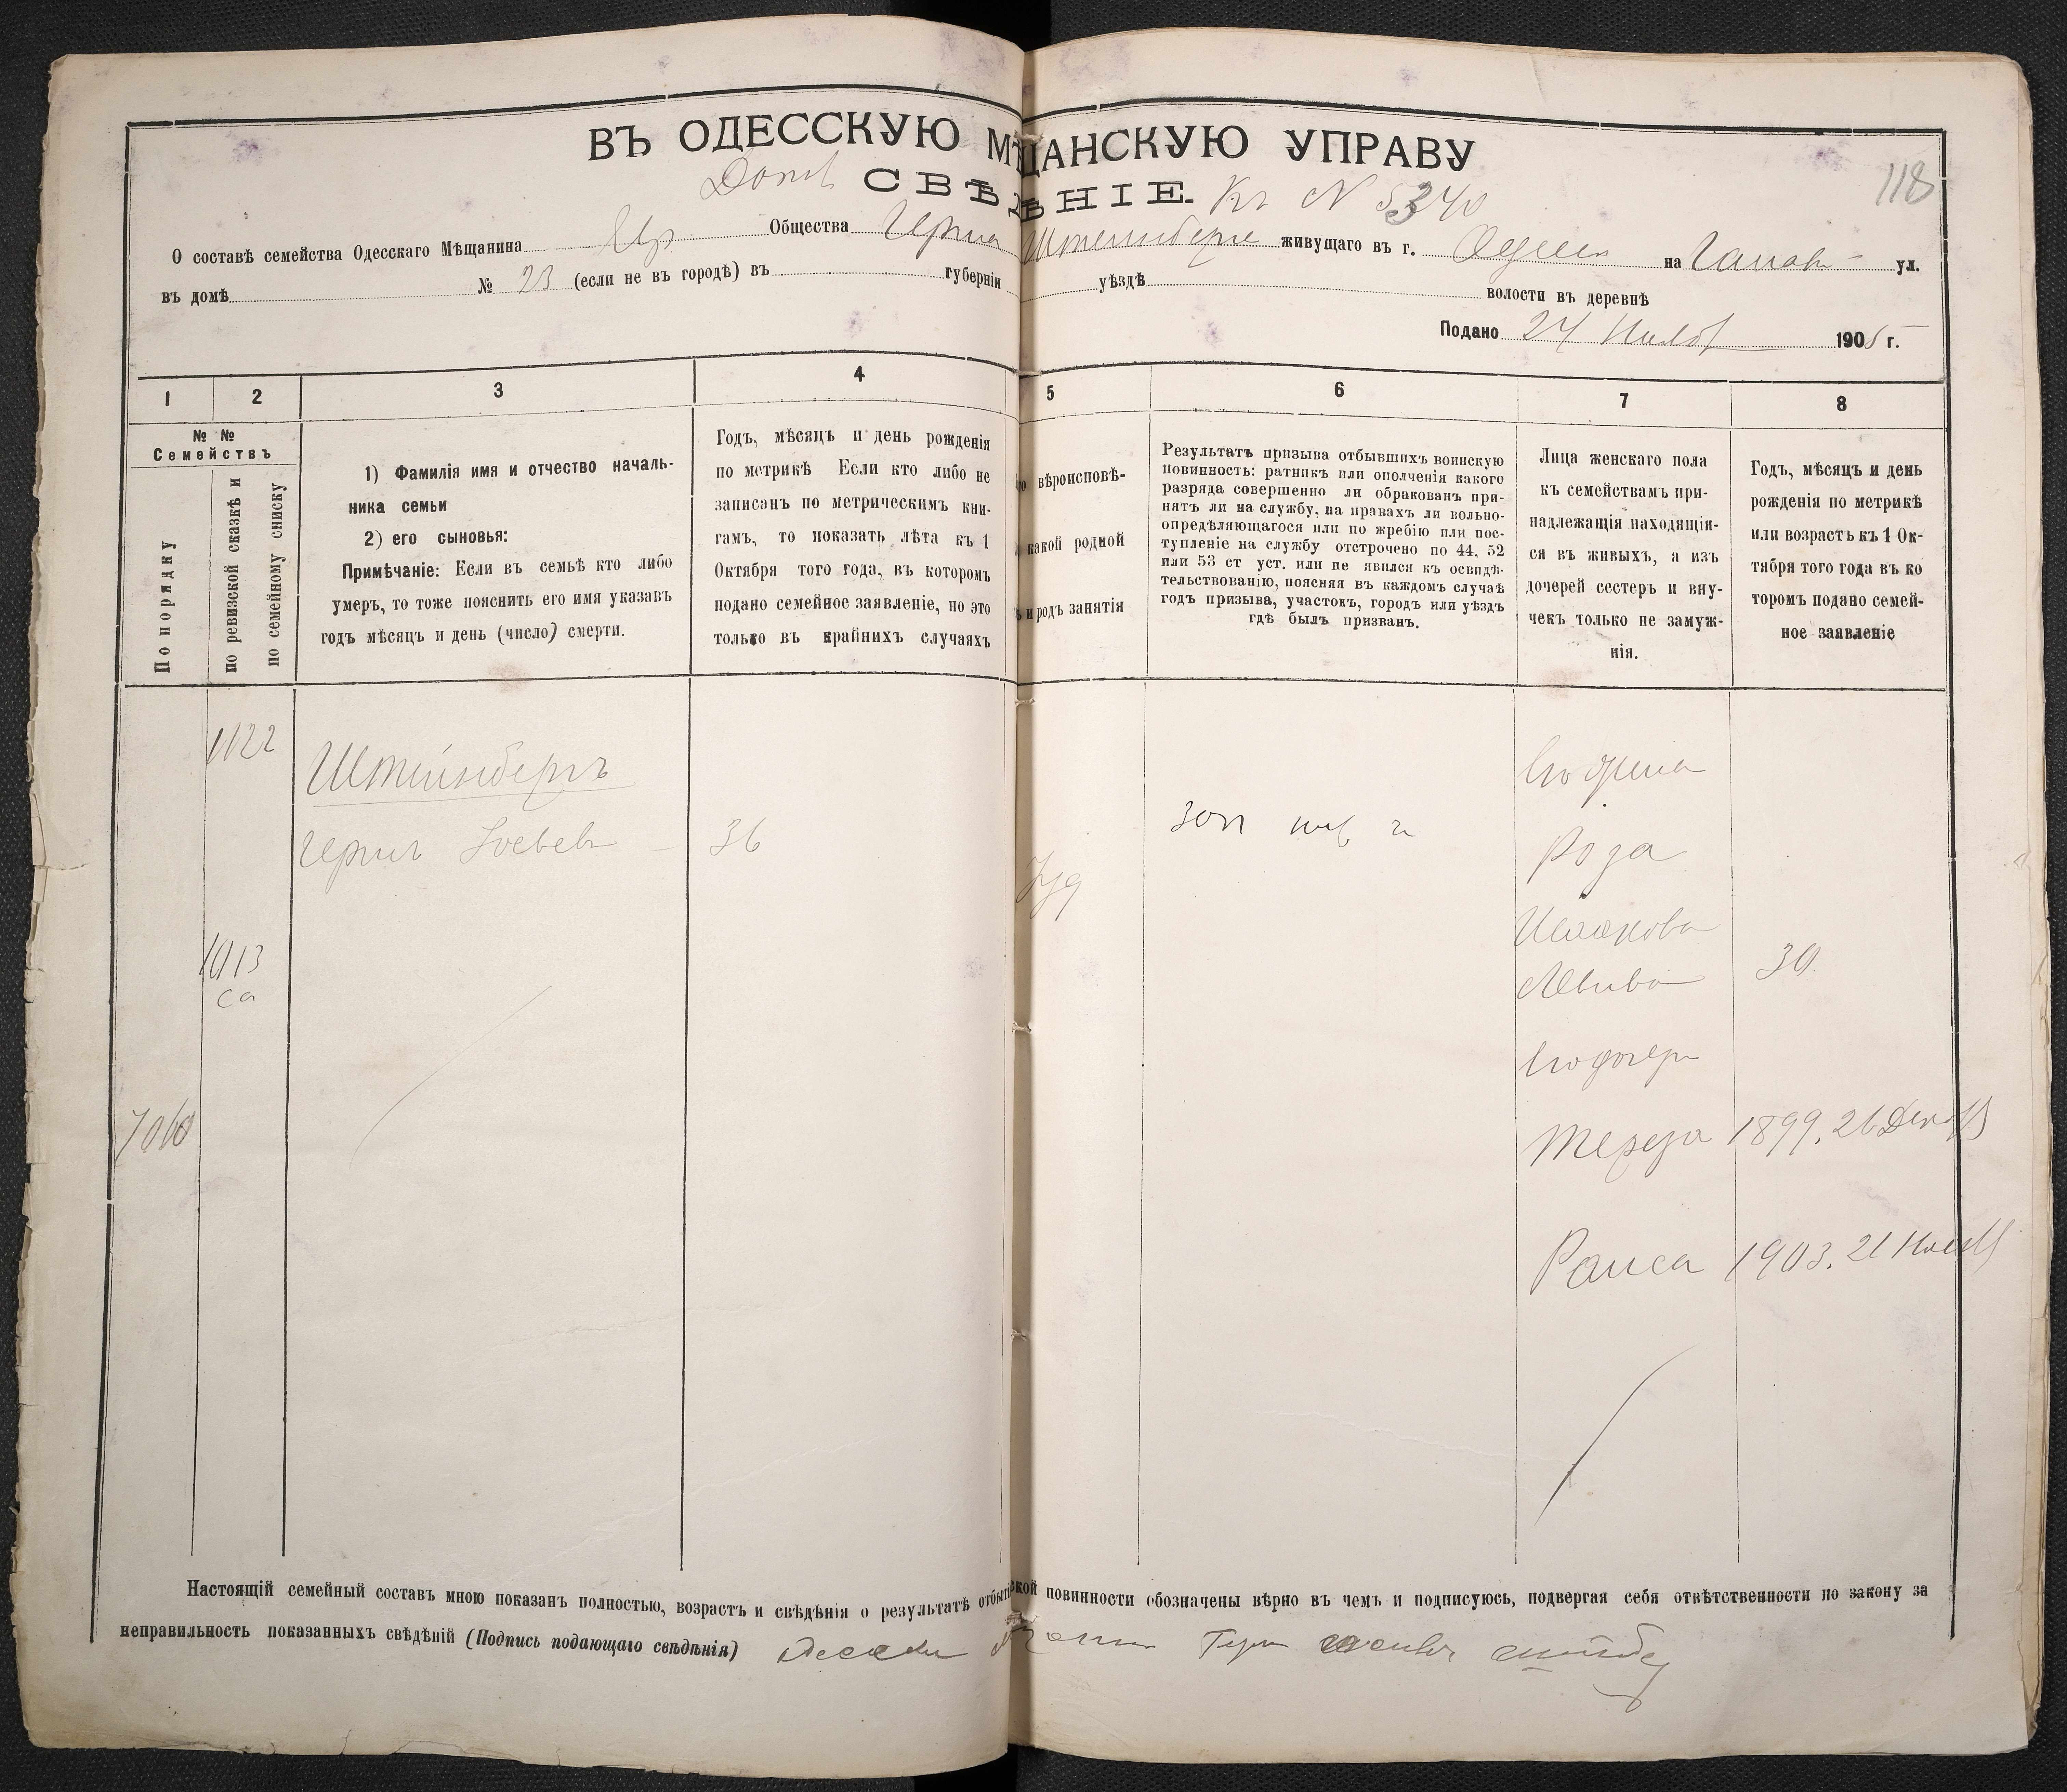 ВЪ ОДЕССКУЮ МѢЩАНСКУЮ УПРАВУ
СВѢДѢНІЕ. Къ № 5340
118
О составѣ семейства Одесскаго Мѣщанина Евр. Общества Герша Штейнберга живущаго въ г. Одессѣ на ул.
въ домѣ № 23 (если не въ городѣ) въ губерніи уѣздѣ волости въ деревнѣ
Подано 24 1905 г.
1 2 3 4 5 6 7 8
№ №
Семействъ
По порядку
по ревизской сказкѣ и
по семейному списку
1) Фамилія имя и отчество началь-
ника семьи
2) его сыновья:
Примѣчаніе: Если въ семьѣ кто либо
умеръ, то тоже пояснить его имя указавъ
годъ мѣсяцъ и день (число) смерти.
Годъ, мѣсяцъ и день рожденія
по метрикѣ Если кто либо не
записанъ по метрическимъ кни-
гамъ, то показать лѣта къ 1
Октября того года, въ которомъ
подано семейное заявленіе, но это
только въ крайнихъ случаяхъ
вѣроисповѣ-
какой родной
и родъ занятія
Результатъ призыва отбывшихъ воинскую
повинность: ратникъ или ополченія какого
разряда совершенно ли обракованъ при-
нятъ ли на службу, на правахъ ли вольно-
опредѣляющагося или по жребію или пос-
тупленіе на службу отстрочено по 44, 52
или 53 ст уст. или не явился къ освидѣ-
тельствованію, поясняя въ каждомъ случаѣ
годъ призыва, участокъ, городъ или уѣздъ
гдѣ былъ призванъ.
Лица женскаго пола
къ семействамъ при-
надлежащія находящія-
ся въ живыхъ, а изъ
дочерей сестеръ и вну-
чекъ только не замуж-
нія.
Годъ, мѣсяцъ и день
рожденія по метрикѣ
или возрастъ къ 1 Ок-
тября того года въ ко
торомъ подано семей-
ное заявленіе
1122
Штейнбергъ
Гершъ 36
Іуд
зап
Его жена
Роза
30
1013
са
Его дочери
7060
Тереза 1899. 26
Раиса 1903. 21
Настоящій семейный составъ мною показанъ полностью, возрастъ и свѣдѣнія о результатѣ отбыт ской повинности обозначены вѣрно въ чемъ и подписуюсь, подвергая себя отвѣтственности по закону за
неправильность показанныхъ свѣдѣній (Подпись подающаго свѣдѣнія)